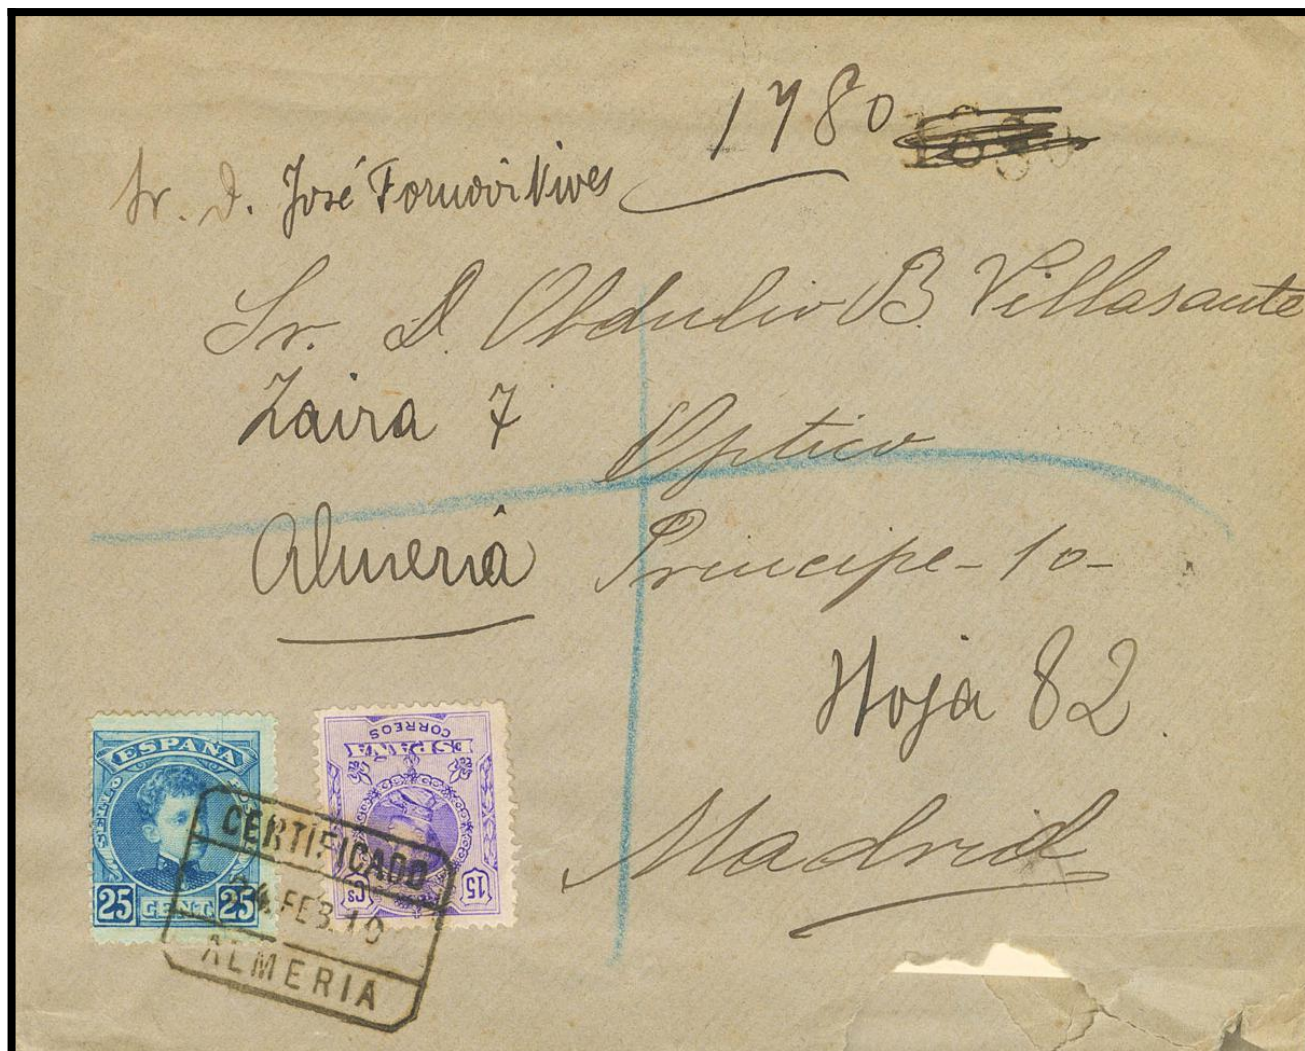 1780
Sr. D. José Vives
Sr. D. Obdulio B. Villasante
Zaira 7
Optico
Almeriâ
Principe - 10 -
Hoja 82
Madrid
ESPAÑA
SELLO
25 CENT. 25
CORREOS
ESPAÑA
15 Cs
CERTIFICADO
24 FEB. 10
ALMERIA